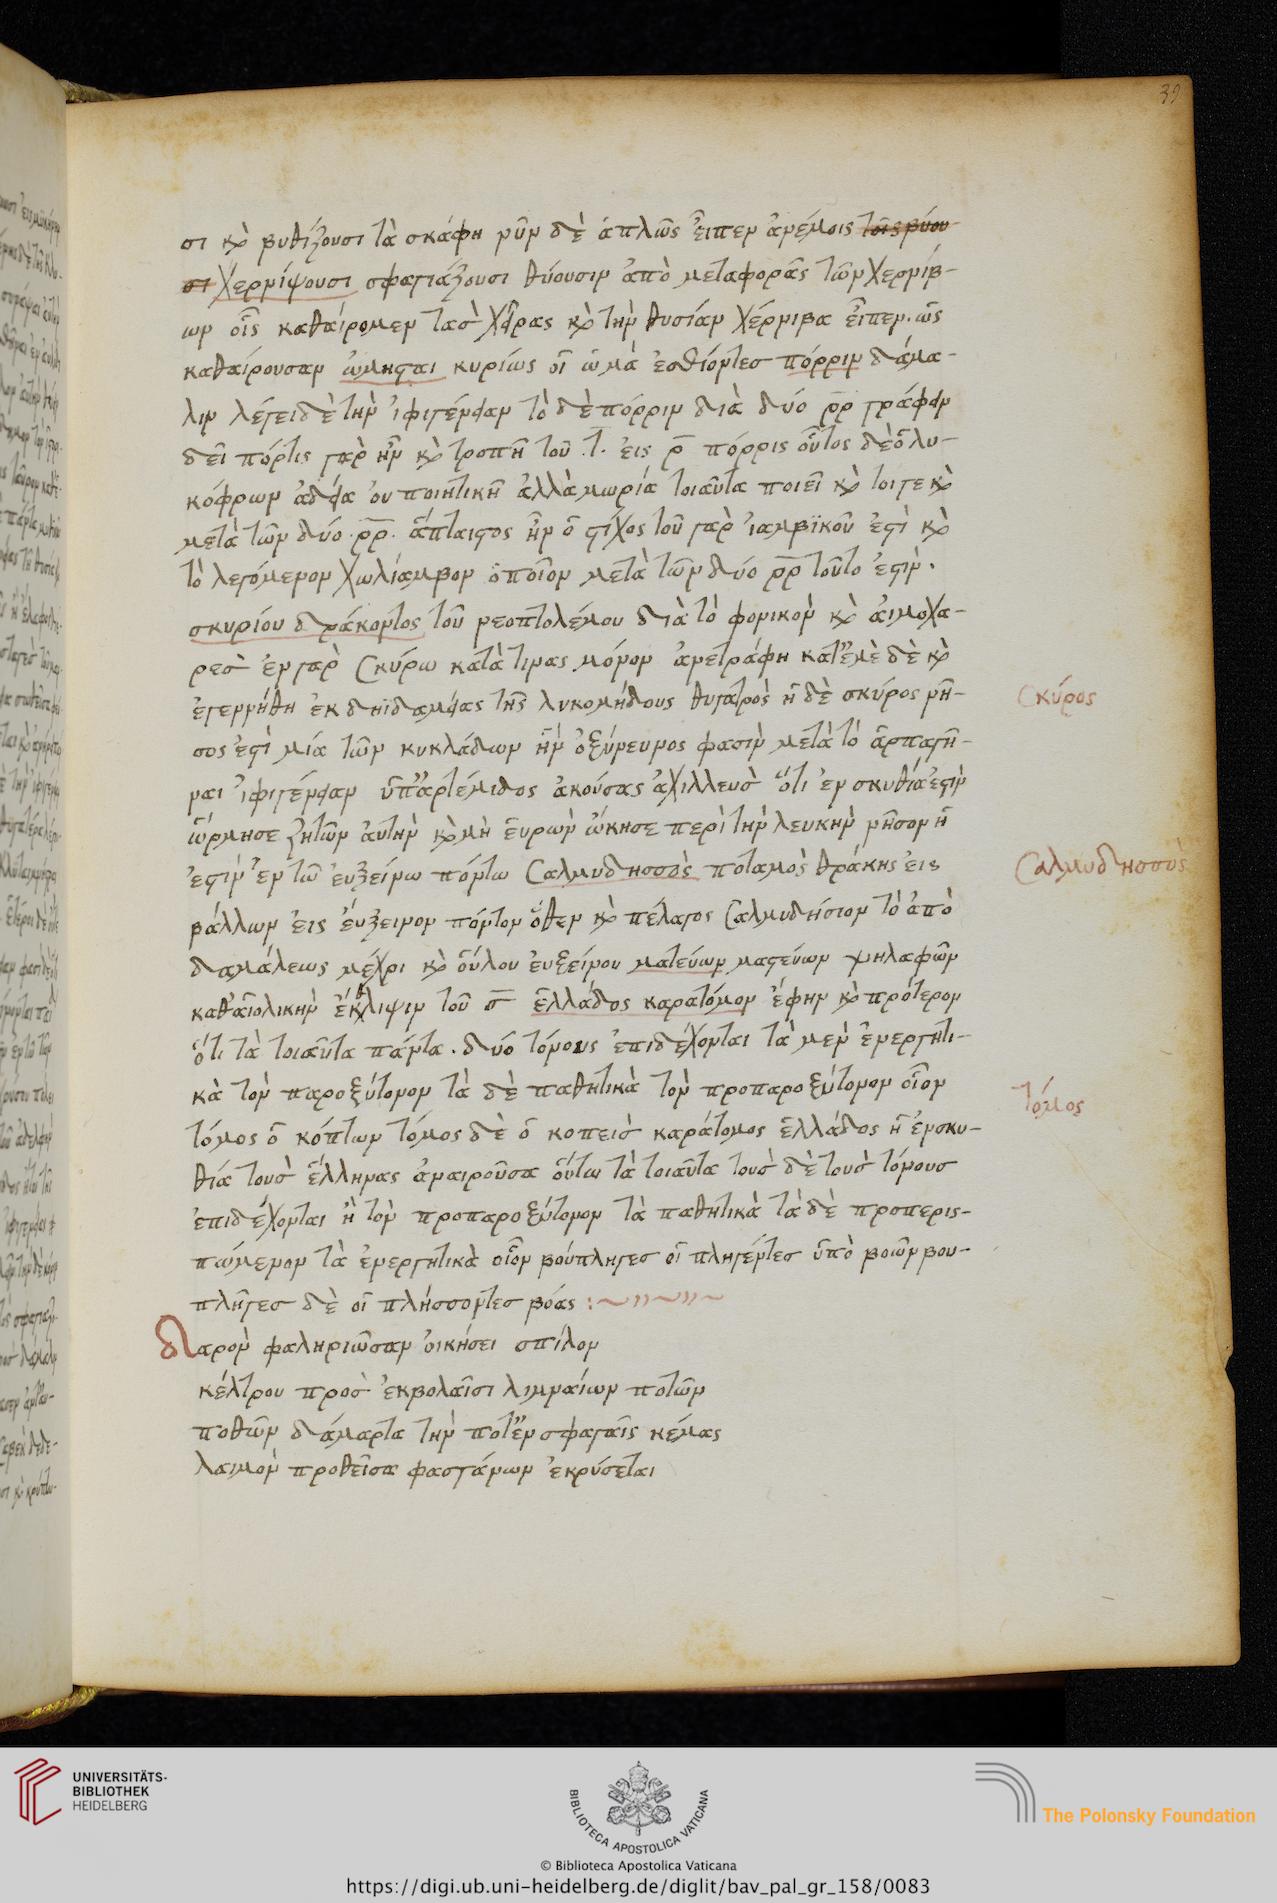 39
σι κὲ βυθίζουσι τὰ σκάφη νῦν δὲ ἁπλῶς εἶπεν ἀνέμοις τοῖς βύου-
σι χερνίψουσι σφαγιάζουσι θύουσιν ἀπὸ μεταφορᾶς τῶν χερνίβ-
ων οἷς καθαίρομεν τασ χεῖρας κὲ τὴν θυσίαν χέρνιβα εἶπεν. ὡς
καθαίρουσαν ὠμησταὶ κυρίως οἱ ὠμὰ ἐσθίοντεσ πόρριν δάμα-
λιν λέγει δὲ τὴν ἰφιγένειαν τὸ δὲ πόρριν διὰ δύο ρρ γράφειν
δεῖ πόρτις γὰρ ἦν κὲ τροπῆ τοῦ .τ. εἰς ρ πόρρις οὗτος δὲ ὁ λυ-
κόφρων ἀδεία οὐ ποιητικῆ ἀλλὰ μωρία τοιαῦτα ποιεῖ κὲ τοιγε κὲ
μετὰ τῶν δύο .ρρ. ἄπταιστος ἦν ὁ στίχος τοῦ γὰρ ἰαμβϊκοῦ ἐστὶ κὲ
τὸ λεγόμενον χωλίαμβον ὁποῖον μετὰ τῶν δύο ρρ τοῦτο ἐστὶν.
σκυρίου δράκοντος τοῦ νεοπτολέμου διὰ τὸ φονικὸν κὲ αἱμοχα-
ρεσ ἐν γὰρ Σκύρω κατὰ τινας μόνον ἀνετράφη κατ' ἐμὲ δὲ κὲ
ἐγεννήθη ἐκ δηϊδαμείας τῆς λυκομήδους θυγατρὸς ἡ δὲ σκύρος νῆ-
σος ἐστὶ μία τῶν κυκλάδων ἣν ὀξύνευνος φασὶν μετὰ τὸ ἁρπαγῆ-
ναι ἰφιγένειαν ὑπ' ἀρτέμιδος ἀκούσας ἀχιλλεὺσ ὅτι ἐν σκυθία ἐστὶν
ὥρμησε ζητῶν αὐτὴν κὲ μὴ εὑρὼν ὤκησε περὶ τὴν λευκὴν νῆσον ἥ
ἐστιν ἐν τῶ εὐξείνω πόντω Σαλμυδησσὸς ποταμὸς θράκης εἰς
βάλλων εἰς εὔξεινον πόντον ὅθεν κὲ πέλαγος Σαλμυδήσιον τὸ ἀπὸ
δαμάλεως μέχρι κὲ ὅλου εὐξείνου ματεύων μαστεύων ψηλαφῶν
καθ' αἰολικὴν ἔκθλιψιν τοῦ σ ἑλλάδος καρατόμον ἔφην κὲ πρότερον
ὅτι τὰ τοιαῦτα πάντα. δύο τόνους ἐπιδέχονται τὰ μὲν ἐνεργητι-
κὰ τὸν παροξύτονον τὰ δὲ παθητικὰ τὸν προπαροξύτονον οἷον
τόμος ὁ κόπτων τόμος δὲ ὁ κοπεὶσ καράτομος ἑλλάδος ἡ ἐν σκυ-
θία τοὺσ ἕλληνας ἀναιροῦσα οὕτω τὰ τοιαῦτα τοὺσ δὲ τοὺσ τόνους
ἐπιδέχονται ἢ τὸν προπαροξύτονον τὰ παθητικὰ τὰ δὲ προπερισ-
πώμενον τὰ ἐνεργητικὰ οἷον βούπληγεσ οἱ πληγέντεσ ὑπὸ βοῶν βου-
πλῆγεσ δὲ οἱ πλήσσοντες βόας :
Δαρὸν φαληριῶσαν οἰκήσει σπίλον
κέλτρου προσ ἐκβολαῖσι λιμναίων ποτῶν
ποθῶν δάμαρτα τὴν ποτ' ἐν σφαγαῖς κέμας
λαιμὸν προθεῖσα φασγάνων ἐκρύσεται
Σκύρος
Σαλμυδησσὸς
τόμος
UNIVERSITÄTS-
BIBLIOTHEK
HEIDELBERG
BIBLIOTECA APOSTOLICA VATICANA
The Polonsky Foundation
© Biblioteca Apostolica Vaticana
https://digi.ub.uni-heidelberg.de/diglit/bav_pal_gr_158/0083